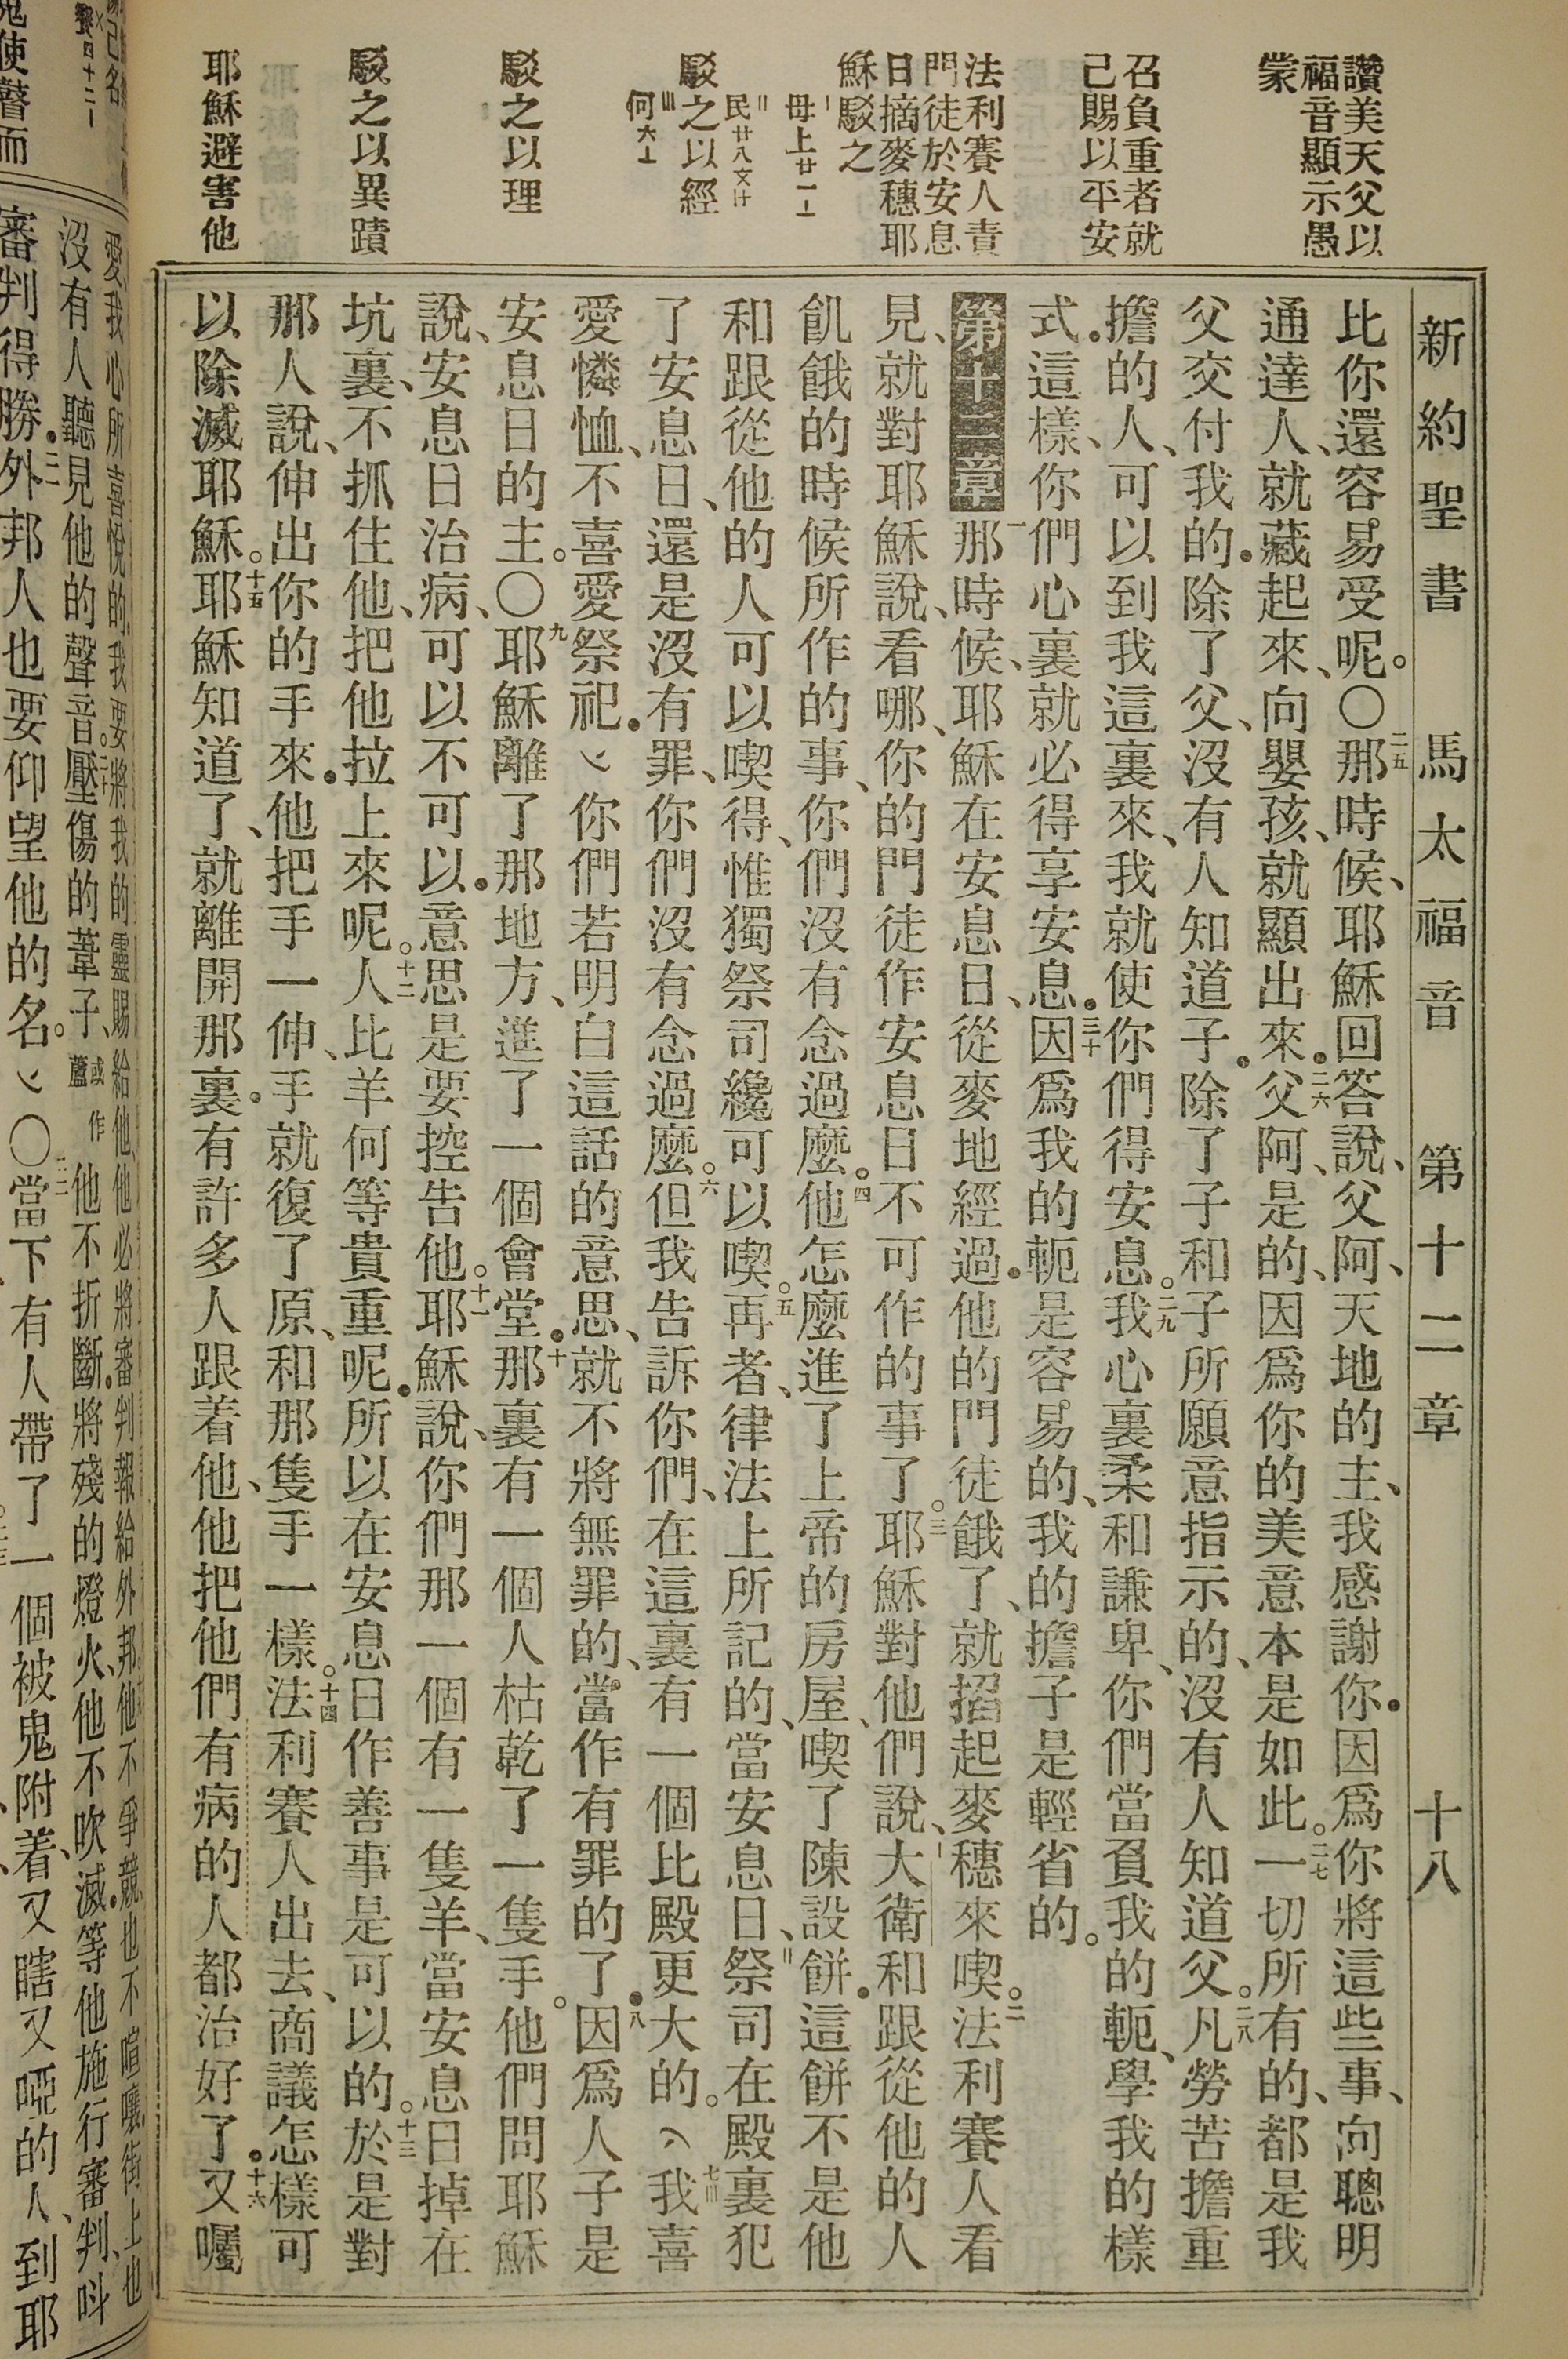 新約聖書 馬太福音 第十二章 十八
讚美天父以
福音顯示愚
蒙
召負重者就
己賜以平安
法利賽人責
門徒於安息
日摘麥穗耶
穌駁之
一母上廿一
二民廿八
駁之以經
三何六
駁之以理
駁之以異蹟
耶穌避害他
比你還容易受呢。〇二五那時候、耶穌回答說、父阿、天地的主、我感謝你.因爲你將這些事、向聰明
通達人、就藏起來、向嬰孩、就顯出來.二六父阿、是的、因爲你的美意本是如此。二七一切所有的、都是我
父交付我的.除了父、沒有人知道子.除了子和子所願意指示的、沒有人知道父。二八凡勞苦擔重
擔的人、可以到我這裏來、我就使你們得安息。二九我心裏柔和謙卑、你們當負我的軛、學我的樣
式.這樣、你們心裏就必得享安息.三十因爲我的軛是容易的、我的擔子是輕省的。
第十二章 一那時候、耶穌在安息日、從麥地經過.他的門徒餓了、就搯起麥穗來喫。二法利賽人看
見、就對耶穌說、看哪、你的門徒作安息日不可作的事了。三耶穌對他們說、一大衛和跟從他的人
飢餓的時候所作的事、你們沒有念過麼.四他怎麼進了上帝的房屋、喫了陳設餅.這餅不是他
和跟從他的人可以喫得、惟獨祭司纔可以喫。五再者、律法上所記的、當安息日、二祭司在殿裏犯
了安息日、還是沒有罪、你們沒有念過麼。六但我告訴你們、在這裏有一個比殿更大的。七三我喜
愛憐恤、不喜愛祭祀.你們若明白這話的意思、就不將無罪的、當作有罪的了.八因爲人子是
安息日的主。〇九耶穌離了那地方、進了一個會堂.十那裏有一個人枯乾了一隻手。他們問耶穌
說、安息日治病、可以不可以.意思是要控告他。十一耶穌說、你們那一個有一隻羊、當安息日掉在
坑裏、不抓住他、把他拉上來呢。十二人比羊何等貴重呢.所以在安息日作善事是可以的。十三於是對
那人說、伸出你的手來.他把手一伸、手就復了原、和那隻手一樣。十四法利賽人出去、商議怎樣可
以除滅耶穌。十五耶穌知道了、就離開那裏.有許多人跟着他、他把他們有病的人都治好了.十六又囑
四十二
鬼使瞽而
愛我心所喜悅的.我要將我的靈賜給他、他必將審判報給外邦.他不爭競、也不喧嚷、街上也
沒有人聽見他的聲音。二十壓傷的葦子、或作蘆他不折斷.將殘的燈火、他不吹滅.等他施行審判、呌
審判得勝.二一外邦人也要仰望他的名。〇二二當下有人帶了一個被鬼附着、又瞎又啞的人、到耶